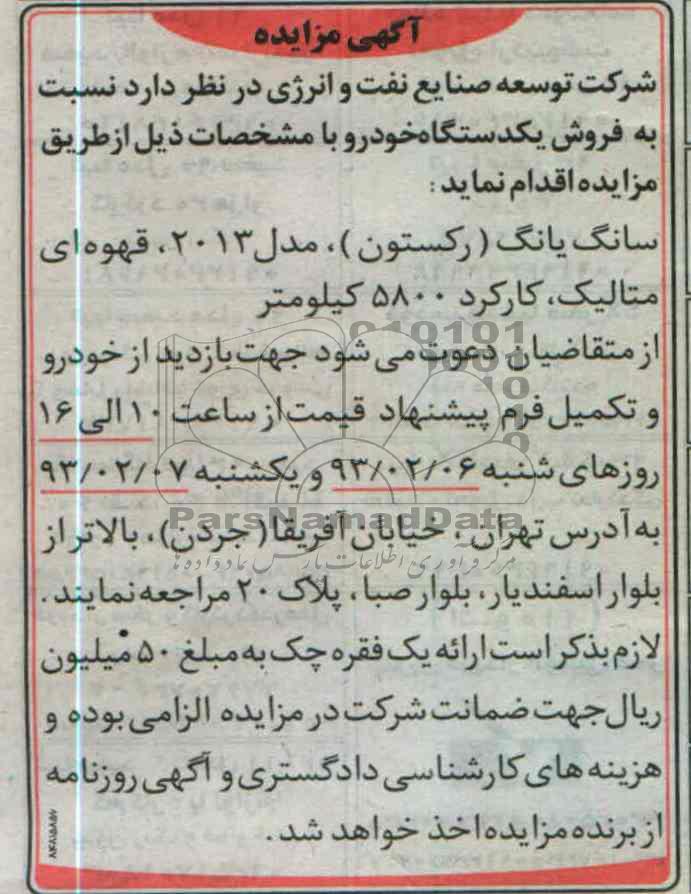 آگهی مزایده
شرکت توسعه صنایع نفت و انرژی در نظر دارد نسبت
به فروش یکدستگاه خودرو با مشخصات ذیل از طریق
مزایده اقدام نماید :
سانگ یانگ ( رکستون ) ، مدل ۲۰۱۳ ، قهوه ای
متالیک، کارکرد ۵۸۰۰ کیلومتر
از متقاضیان دعوت می شود جهت بازدید از خودرو
و تکمیل فرم پیشنهاد قیمت از ساعت ۱۰ الی ۱۶
روزهای شنبه ۹۳/۰۲/۰۶ و یکشنبه ۹۳/۰۲/۰۷
ParsNamadData
به آدرس تهران ، خیابان آفریقا ( جردن ) ، بالاتر از
بلوار اسفندیار ، بلوار صبا ، پلاک ۲۰ مراجعه نمایند .
لازم بذکر است ارائه یک فقره چک به مبلغ ۵۰ میلیون
ریال جهت ضمانت شرکت در مزایده الزامی بوده و
هزینه های کارشناسی دادگستری و آگهی روزنامه
از برنده مزایده اخذ خواهد شد .